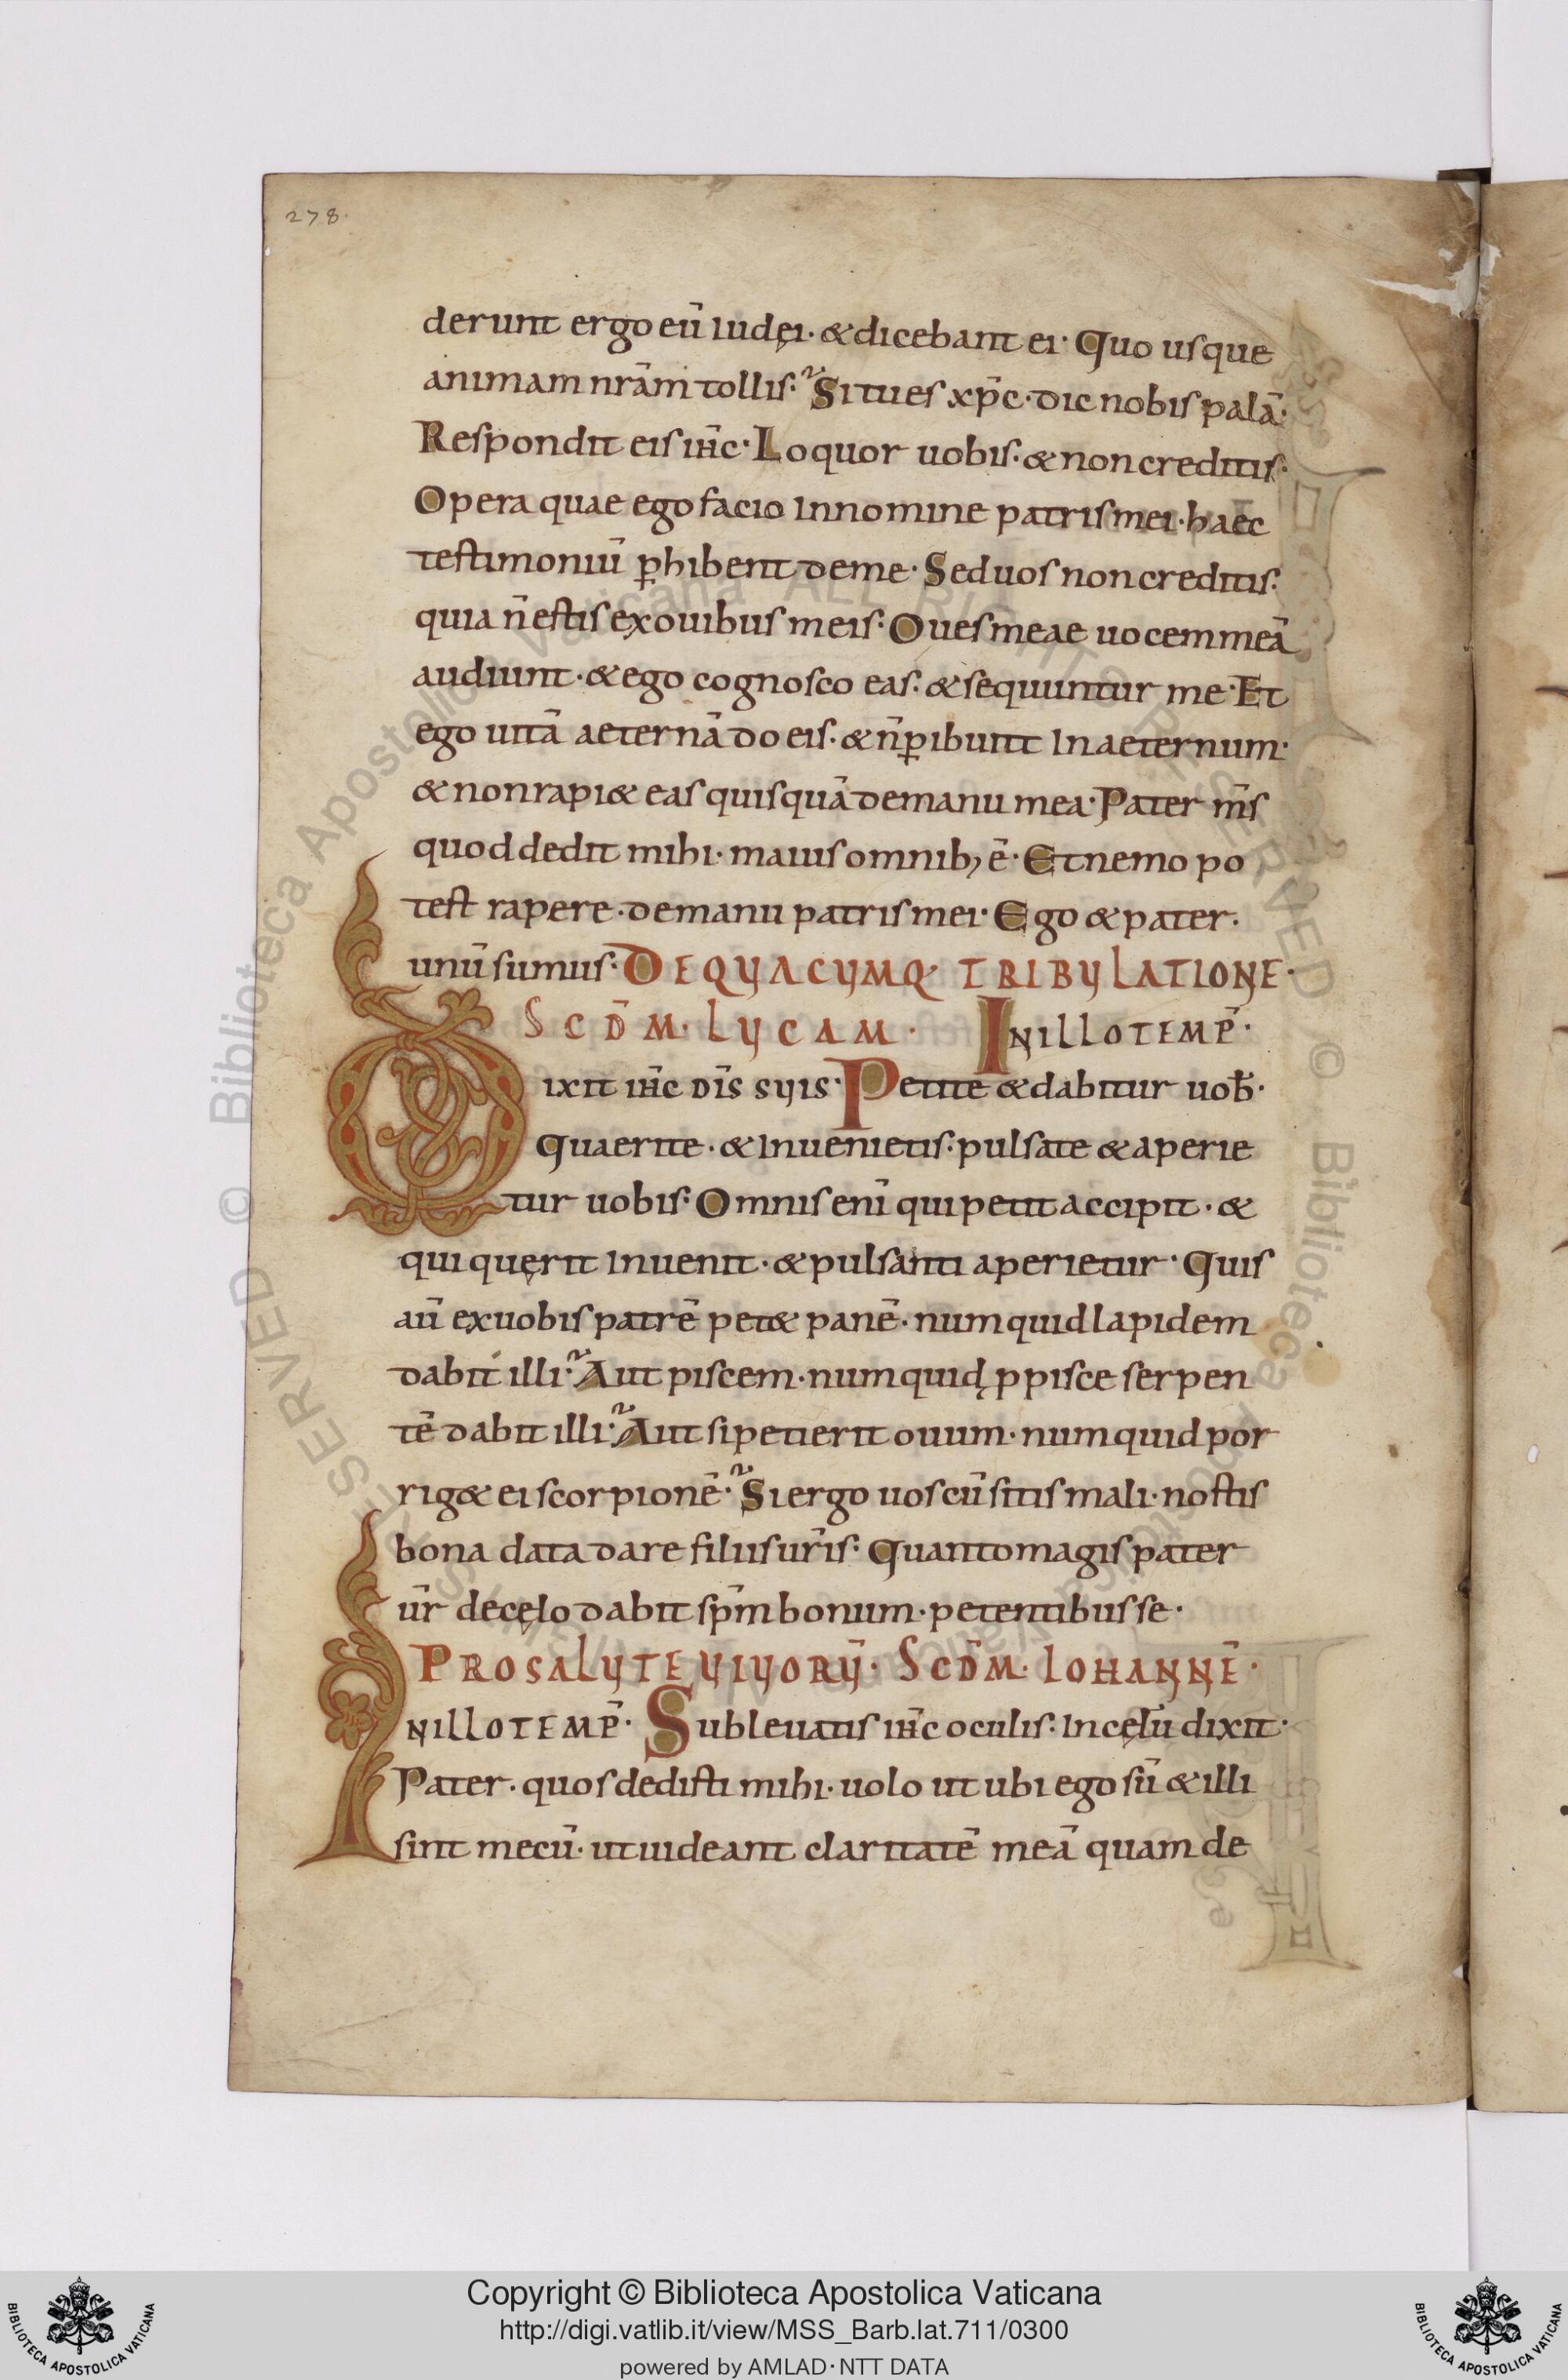 278.
derunt ergo eū iudęi· & dicebant ei· Quo usque
animam nr̄am tollis· Si tu es xp̄c· dic nobis palā·
Respondit eis ih̄c· Loquor uobis· & non creditis·
Opera quae ego facio in nomine patris mei· haec
testimoniū ꝑhibent de me· Sed uos non creditis·
quia n̄ estis ex ouibus meis· Oues meae uocem meā
audiunt· & ego cognosco eas· & sequuntur me· Et
ego uitā aeternā do eis· & n̄ ꝑibunt in aeternum·
& non rapi& eas quisquā de manu mea· Pater m̄s
quod dedit mihi· maius omnib; ē· Et nemo po
test rapere· de manu patris mei· Ego & pater·
unū sumus· DE QUACUMQ· TRIBULATIONE·
SCD̄M· LUCAM· IN ILLO TEMP̄·
Dixit ih̄c DIS̄ SUIS· Petite & dabitur uob̄·
Quaerite· & inuenietis· pulsate & aperie
tur uobis· Omnis eni̅ qui petit accipit· &
qui quęrit inuenit· & pulsanti aperietur· Quis
au̅ ex uobis patrē pet& panē· numquid lapidem
dabit illi· Aut piscem· numquid ꝓ pisce serpen
tē dabit illi· Aut si petierit ouum· numquid por
rig& ei scorpionē· Si ergo uos cū sitis mali· nostis
bona data dare filiis ur̄is· Quanto magis pater
ur̄ de cęlo dabit sp̄m bonum· petentibus se·
PRO SALUTE UIUORŪ· SCD̄M· IOHANNĒ·
IN ILLO TEMP̄· Subleuatis ih̄c oculis· in cęlū dixit·
Pater· quos dedisti mihi· uolo ut ubi ego sū & illi
sint mecū· ut uideant claritatē meā quam de
Copyright © Biblioteca Apostolica Vaticana
http://digi.vatlib.it/view/MSS_Barb.lat.711/0300
powered by AMLAD·NTT DATA
BIBLIOTECA APOSTOLICA VATICANA
BIBLIOTECA APOSTOLICA VATICANA